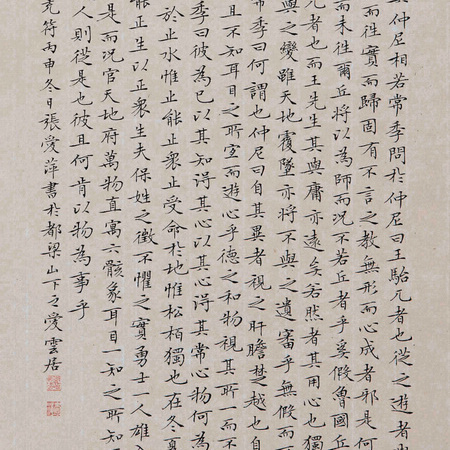 仲尼相若常季問於仲尼曰王駘兀者也從之遊者
而往實而歸固有不言之教無形而心成者邪是何
而未往爾丘將以為師而況不若丘者乎奚假魯國丘
兀者也而王先生其與庸亦遠矣若然者其用心也獨
與之變雖天地覆墜亦將不與之遺審乎無假而不
常季曰何謂也仲尼曰自其異者視之肝膽楚越也自
且不知耳目之所宜而遊心乎德之和物視其所一而不
季曰彼為己以其知得其心以其心得其常心物何為
於止水惟止能止衆止受命於地惟松柏獨也在冬夏
能正生以正衆生夫保始之徵不懼之實勇士一人雄入
是而況官天地府萬物直寓六骸象耳目一知之所知
人則從是也彼且何肯以物為事乎
充符丙申冬日張愛萍書於都梁山下之愛雲居